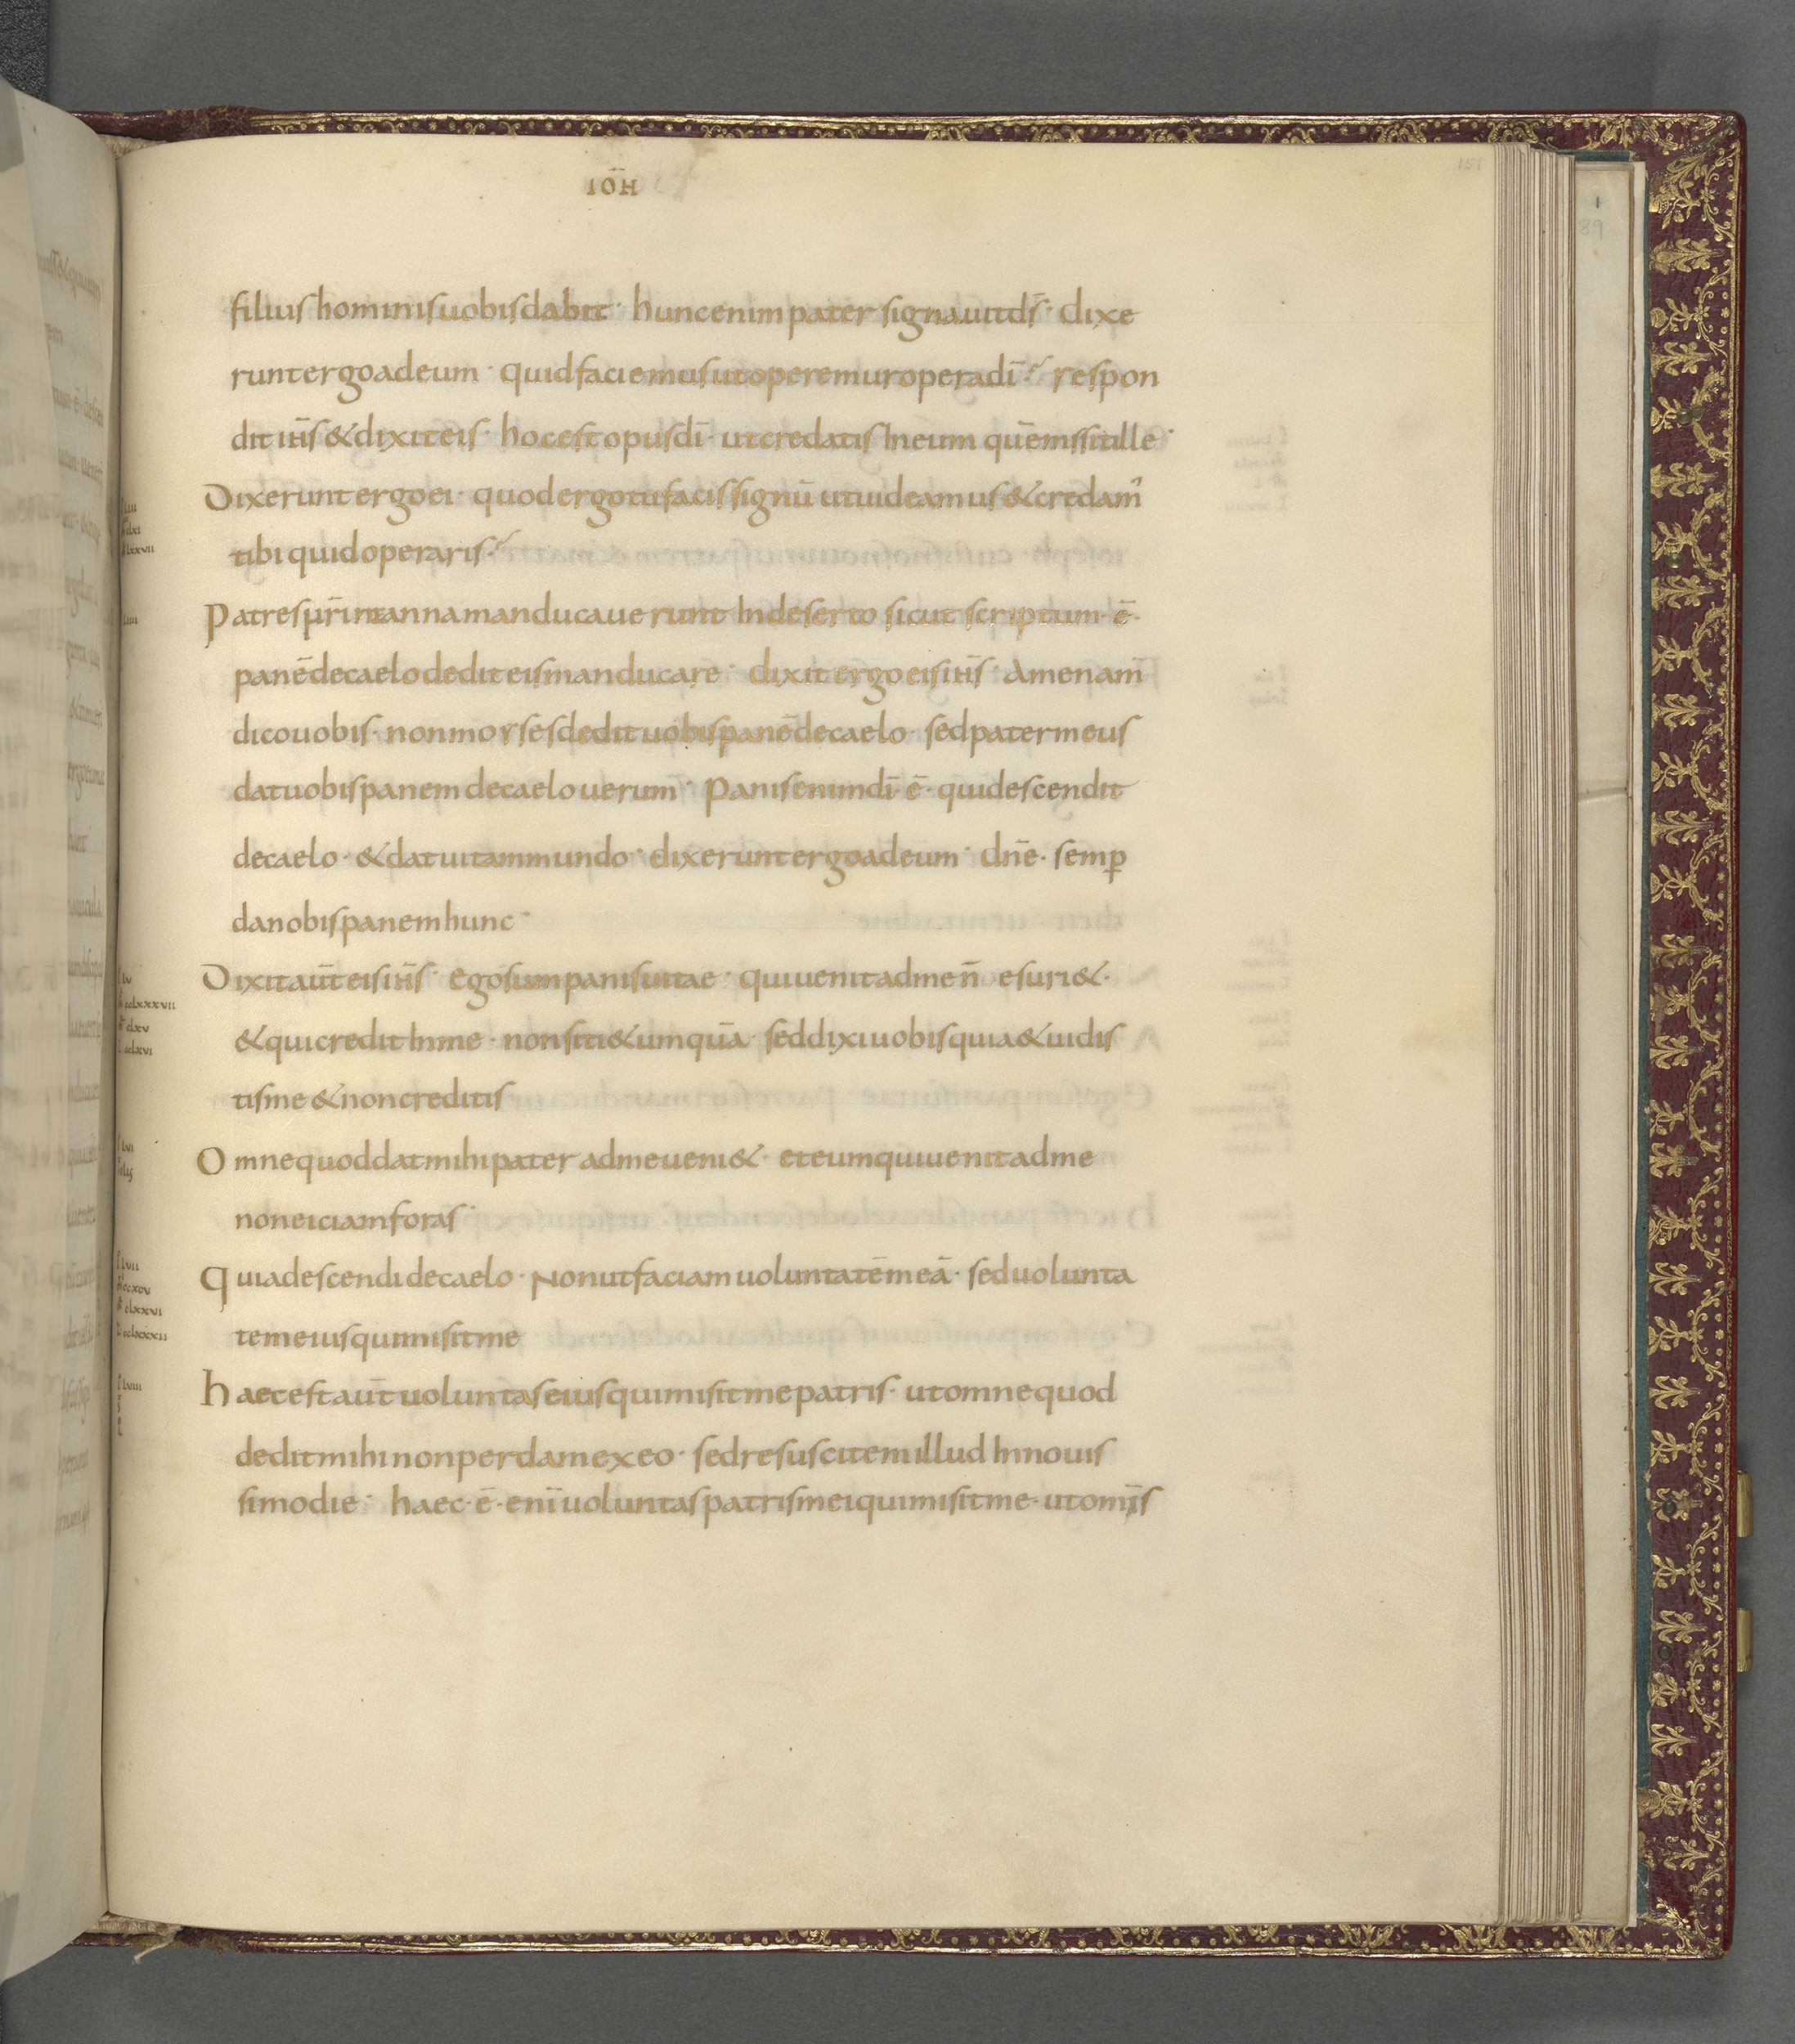 IOH̄
151
filius hominis uobis dabit · hunc enim pater signauit d̄s · dixe
runt ergo ad eum · quid faciemus ut operemur opera dī · respon
dit ih̄s & dixit eis · hoc est opus dī · ut credatis In eum quē missit Ille ·
Dixerunt ergo ei · quod ergo tu facis signū ut uideamus & credam'
tibi quid operaris ·
Patres nr̄i manna manducauerunt In deserto sicut scriptum · ē ·
panē de caelo dedit eis manducare · dixit ergo eis ih̄s · Amen am̄
dico uobis · non morses dedit uobis panē de caelo · sed pater meus
dat uobis panem de caelo uerum · Panis enim dī · ē · qui descendit
de caelo · & dat uitam mundo · dixerunt ergo ad eum · dn̄e · semꝑ
da nobis panem hunc ·
Dixit aūt eis ih̄s · Ego sum panis uitae · qui uenit ad me n̄ esuri& ·
& qui credit In me · non siti& umquā · sed dixi uobis quia & uidis
tis me & non creditis
Omne quod dat mihi pater ad me ueni& · et eum qui uenit ad me
non eiciam foras ·
Quia descendi de caelo · Non ut faciam uoluntatē meā · sed uolunta
tem eius qui misit me
Haec est aūt uoluntas eius qui misit me patris · ut omne quod
dedit mihi non perdam ex eo · sed resuscitem illud In nouis
simo die · haec · ē · enī uoluntas patris mei qui misit me · ut omīs
1
89